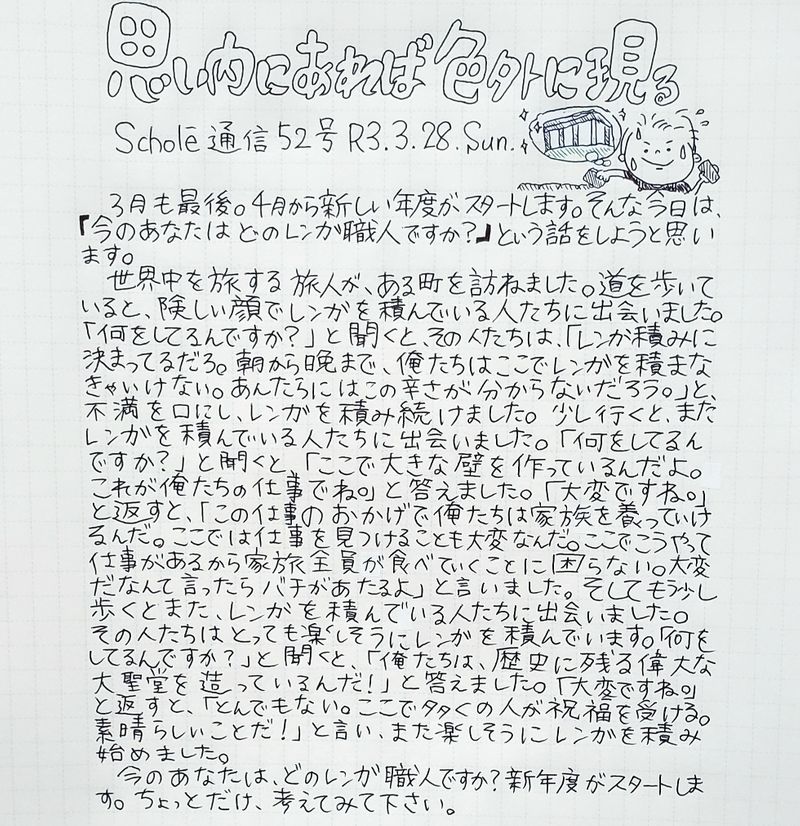 思い内にあれば色外に現る
Scholē通信52号 R3.3.28.Sun.
3月も最後。4月から新しい年度がスタートします。そんな今日は、
『今のあなたはどのレンガ職人ですか?』という話をしようと思い
ます。
世界中を旅する旅人が、ある町を訪ねました。道を歩いて
いると、険しい顔でレンガを積んでいる人たちに出会いました。
「何をしてるんですか?」と聞くと、その人たちは、「レンガ積みに
決まってるだろ。朝から晩まで、俺たちはここでレンガを積まな
きゃいけない。あんたらにはこの辛さが分からないだろう。」と、
不満を口にし、レンガを積み続けました。少し行くと、また
レンガを積んでいる人たちに出会いました。「何をしてるん
ですか?」と聞くと、「ここで大きな壁を作っているんだよ。
これが俺たちの仕事でね。」と答えました。「大変ですね。」
と返すと、「この仕事のおかげで俺たちは家族を養っていけ
るんだ。ここでは仕事を見つけることも大変なんだ。ここでこうやって
仕事があるから家族全員が食べていくことに困らない。大変
だなんて言ったらバチがあたるよ」と言いました。そしてもう少し
歩くとまた、レンガを積んでいる人たちに出会いました。
その人たちはとっても楽しそうにレンガを積んでいます。「何を
してるんですか?」と聞くと、「俺たちは、歴史に残る偉大な
大聖堂を造っているんだ!」と答えました。「大変ですね。」
と返すと、「とんでもない。ここで多くの人が祝福を受ける。
素晴らしいことだ!」と言い、また楽しそうにレンガを積み
始めました。
今のあなたは、どのレンガ職人ですか?新年度がスタートしま
す。ちょっとだけ、考えてみて下さい。